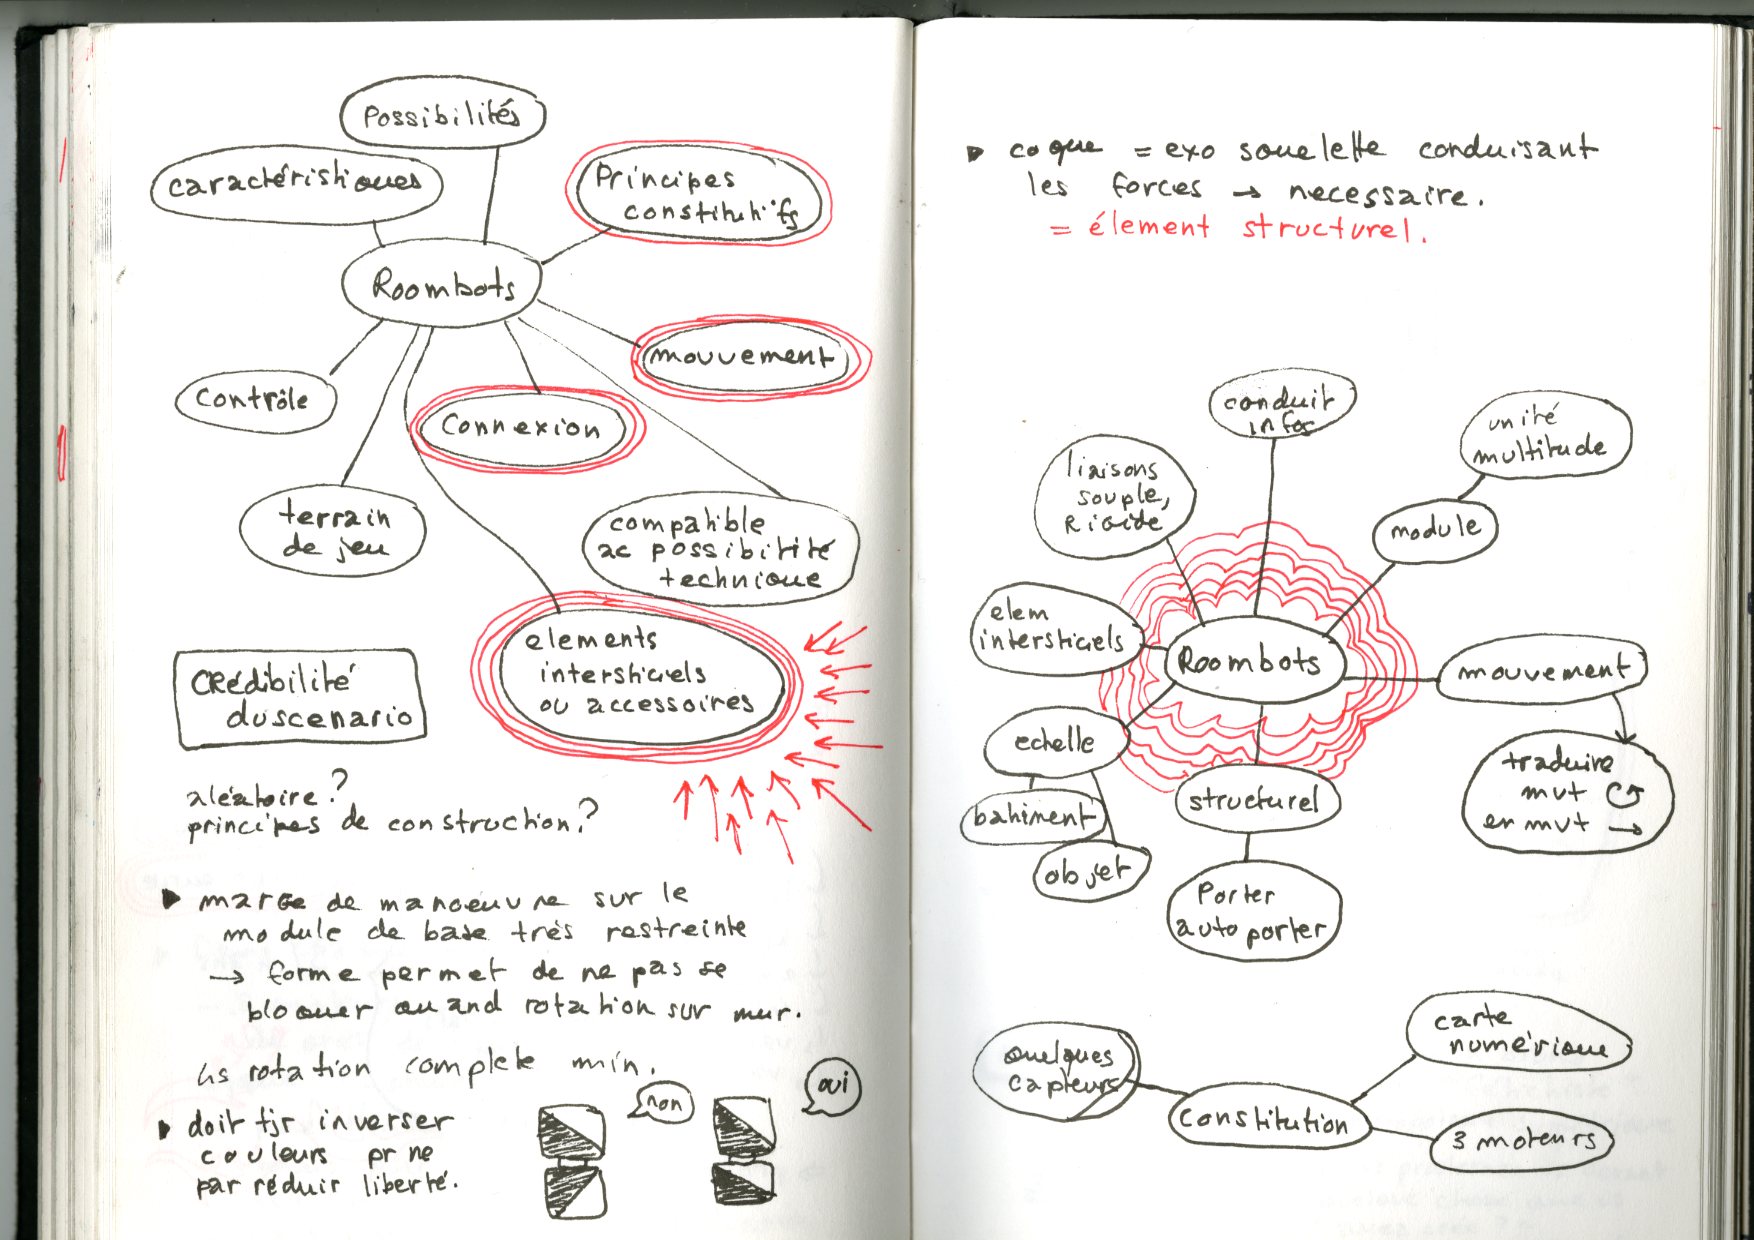 Possibilités
caractéristiques
Principes
constitutifs
Roombots
mouvement
contrôle
connexion
terrain
de jeu
compatible
ac possibilité
technique
elements
intersticiels
ou accessoires
CRédibilité
du scenario
aléatoire?
principes de construction?
marge de manoeuvre sur le
module de base très restreinte
→ forme permet de ne pas se
bloquer quand rotation sur mur.
rotation complete min.
non
oui
doit tjr inverser
couleurs pr ne
par réduir liberté.
coque = exo souelette conduisant
les forces → necessaire.
= élement structurel.
conduit
infos
unité
multitude
liaisons
souple,
Rigide
module
elem
intersticiels
Roombots
mouvement
echelle
traduire
mvt
en mvt →
structurel
batiment
objet
Porter
auto porter
carte
numérique
quelques
capteurs
constitution
3 moteurs